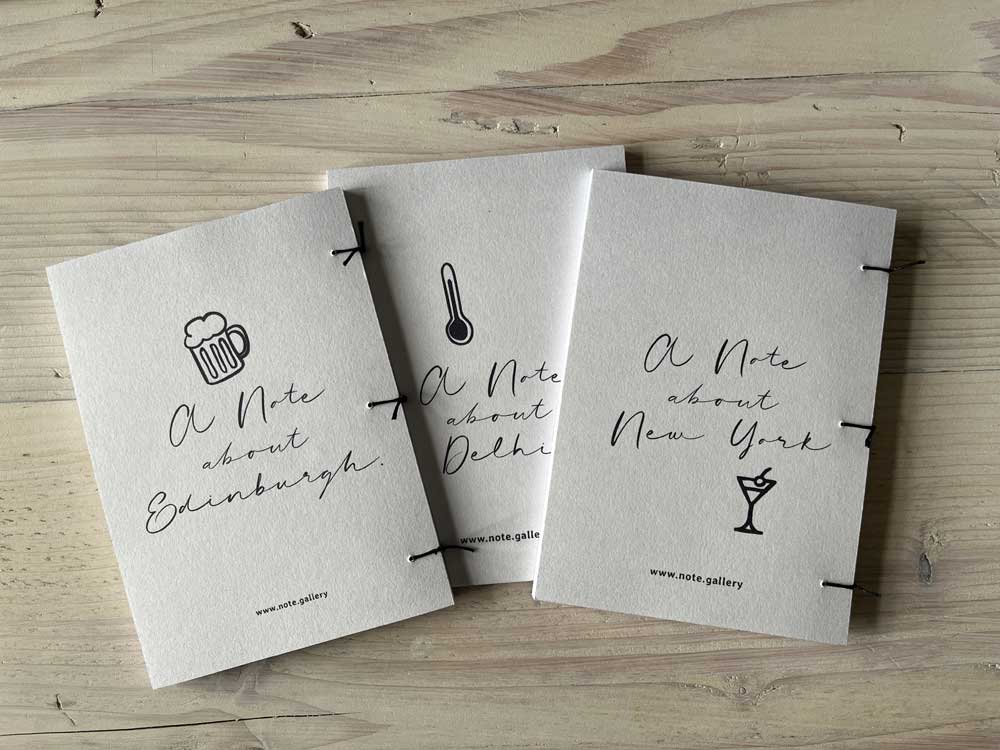 A Note
about
Edinburgh.
www.note.gallery
A Note
about
Delhi
www.note.galle
A Note
about
New York
www.note.gallery